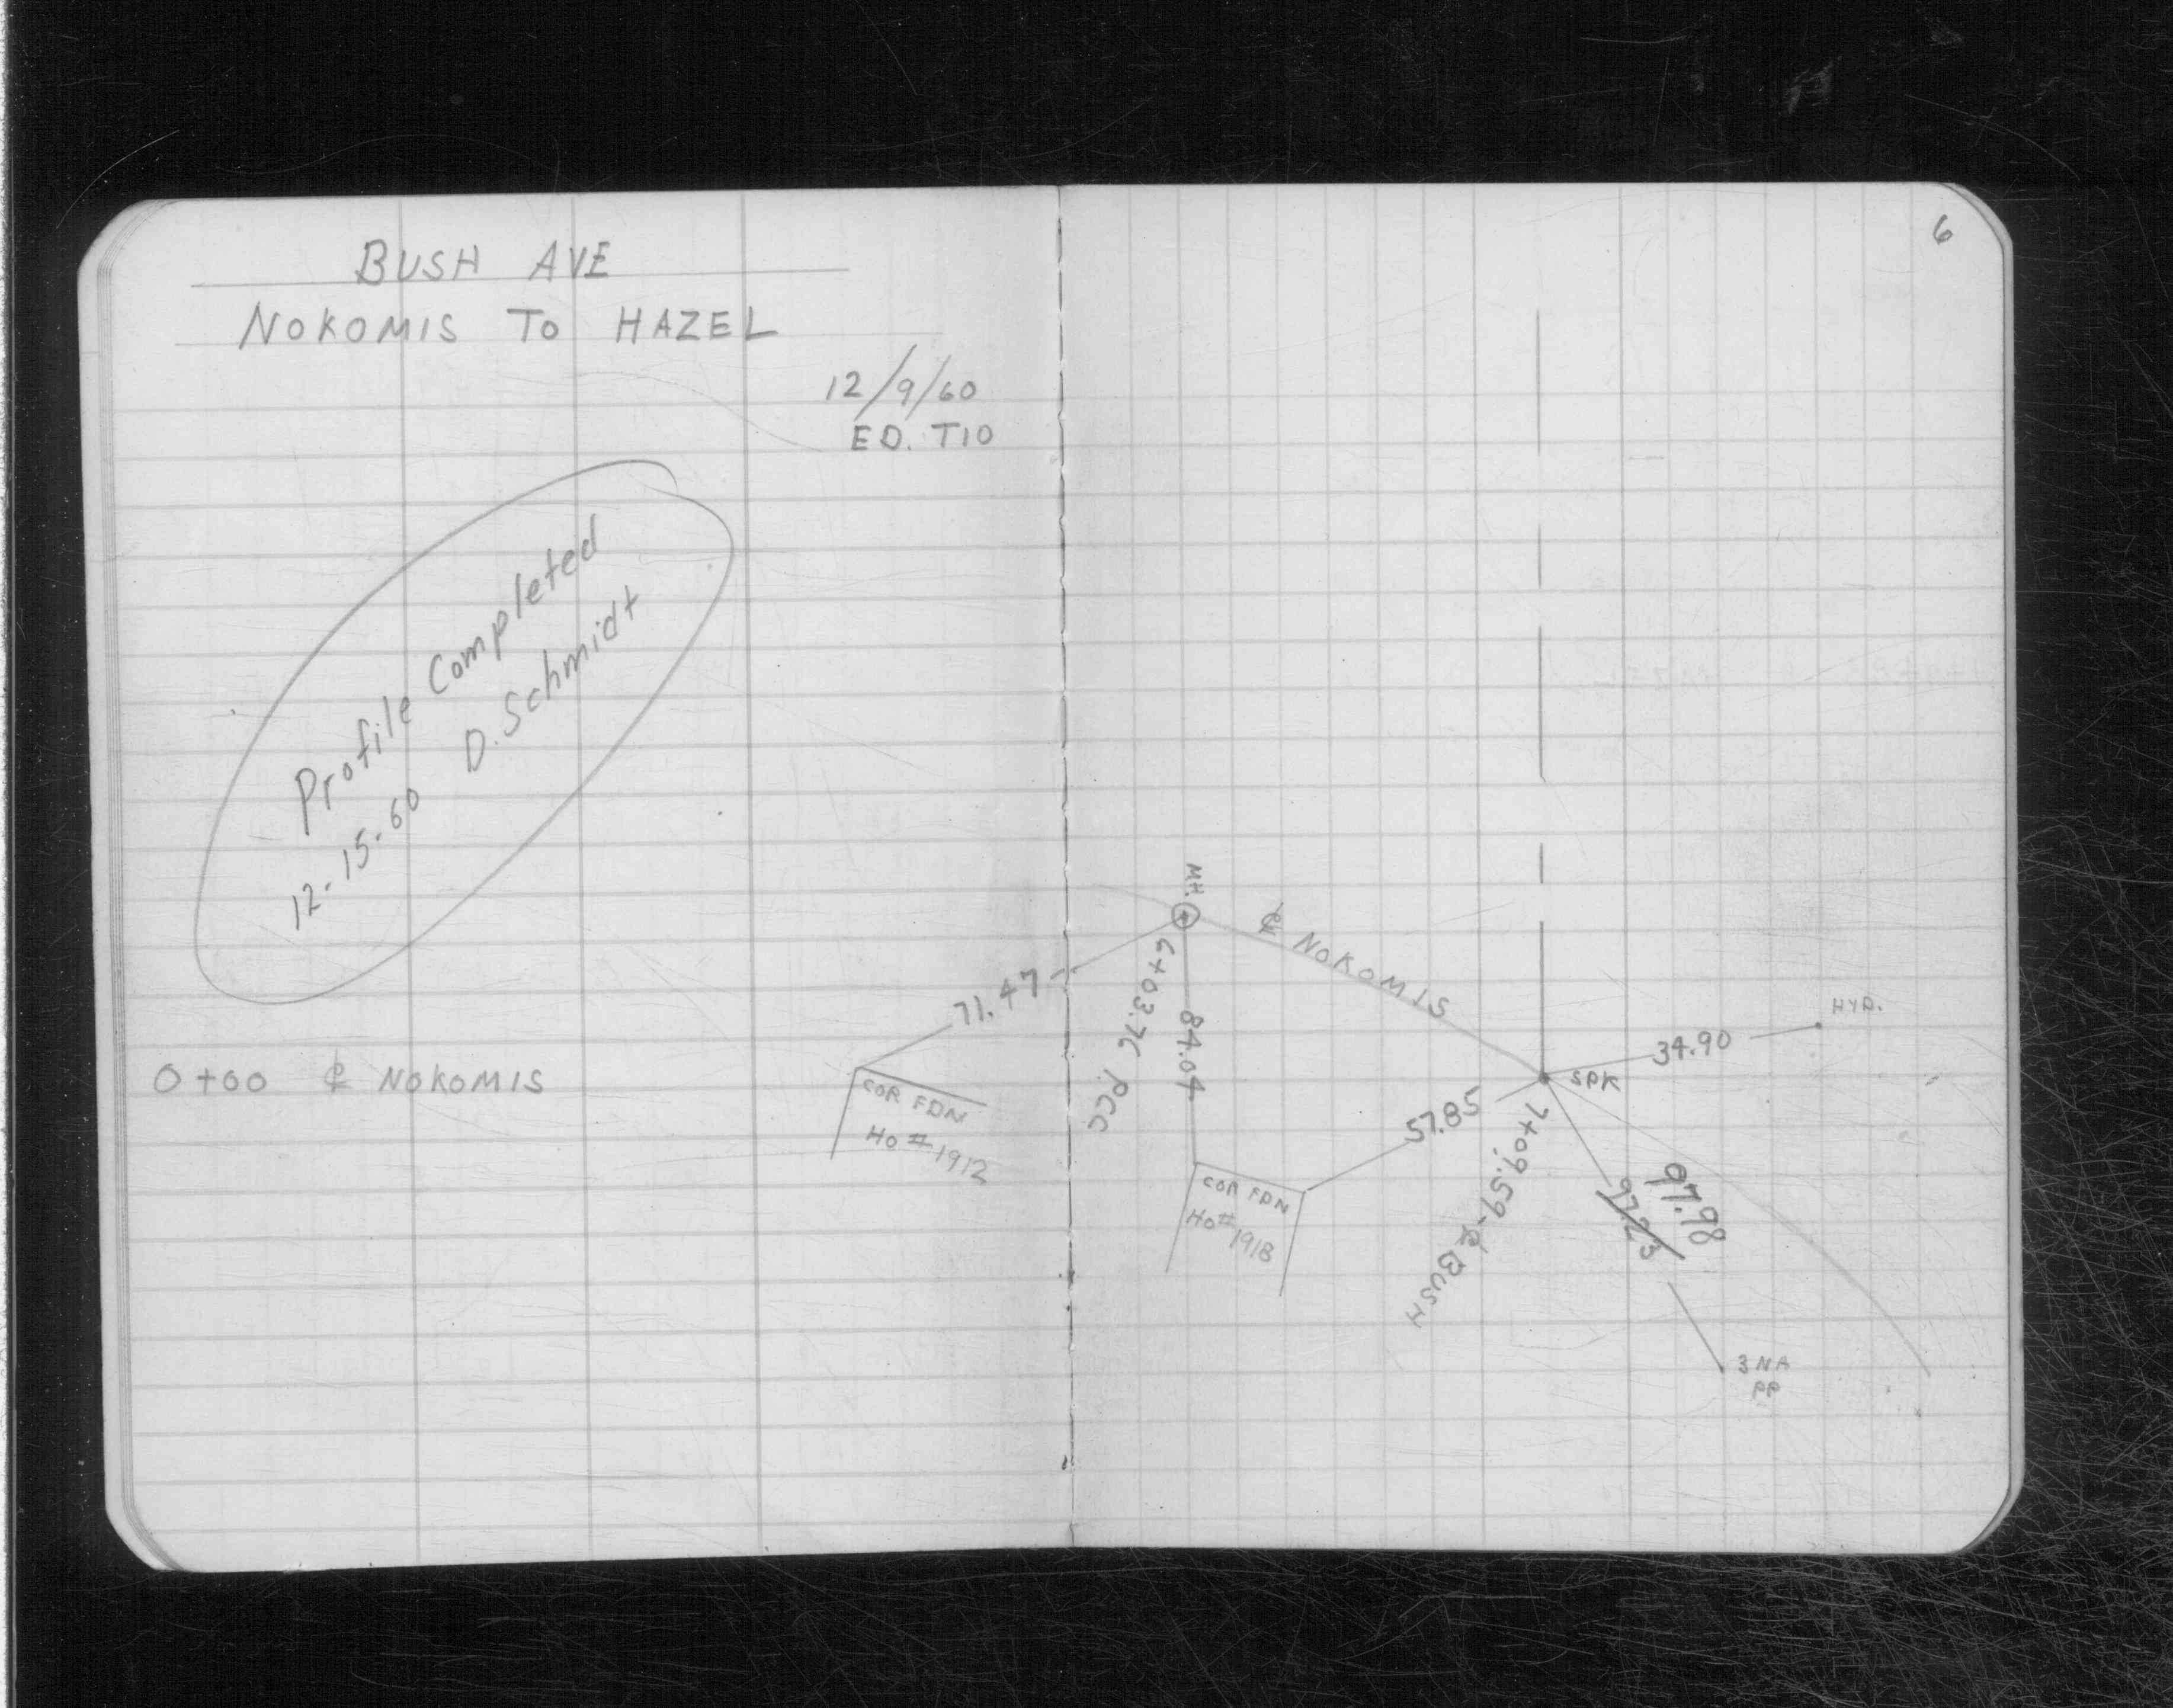 BUSH AVE
NOKOMIS TO HAZEL
12/9/60
ED. T10
Profile Completed
12-15-60 D. Schmidt
0+00 ℄ NOKOMIS
6
M.H.
℄ NOKOMIS
71.47
6+03.76 P.C.C.
84.04
COR FDN
HO # 1912
COR FDN
HO # 1918
57.85
SPK
34.90
HYD.
7+09.59 ℄ BUSH
97.23
97.98
3 NA
PP